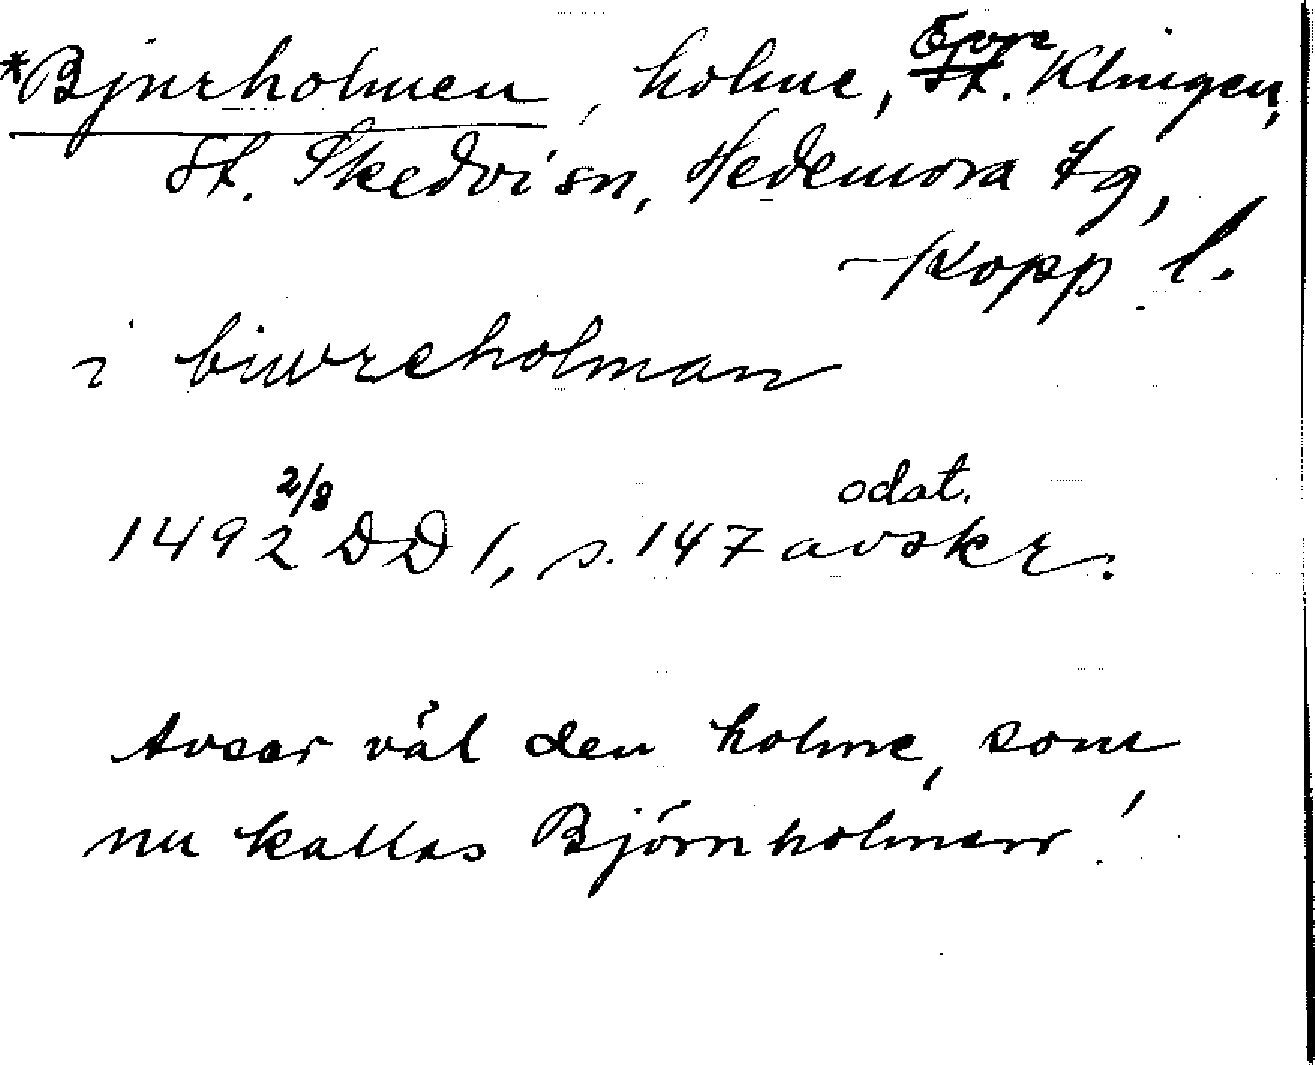 *Bjurholmen, holme, Övre Klingen,
St. Skedvi sn, Hedemora tg,
Kopp. l.
i biwreholman
1492 2/8 DD 1, s. 147 odat. avskr.
Avser väl den holme, som
nu kallas Björnholmen!